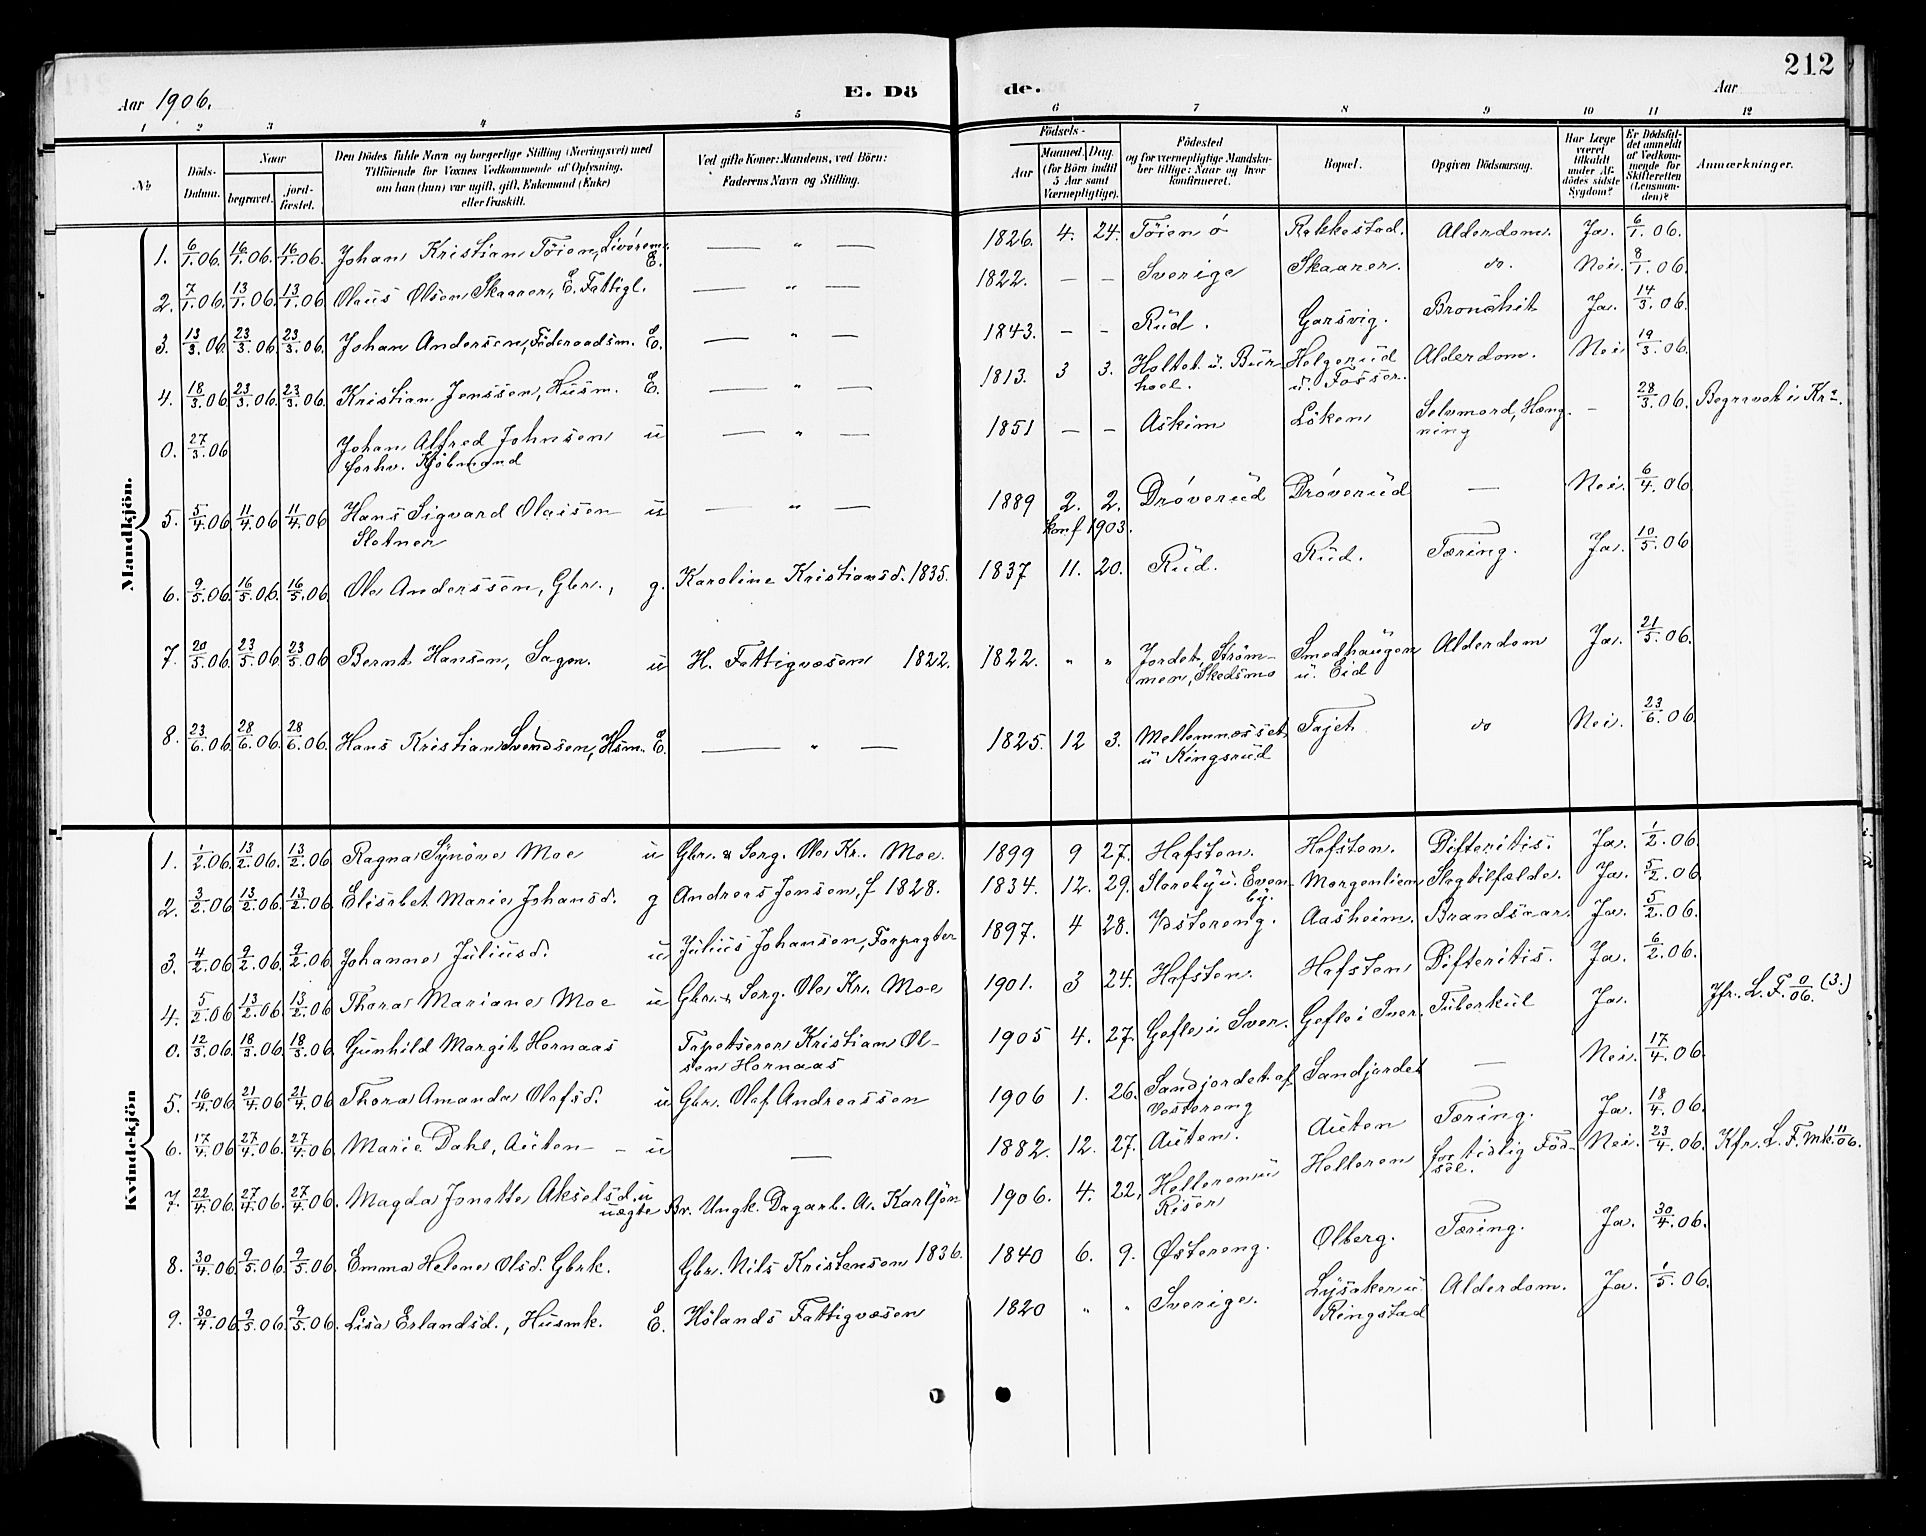 212
Aar 1906.
E. Dö
de.
Aar
1 2 3 4 5 6 7 8 9 10 11 12
No
Döds-Datum.
Naar
begravet.
jord-fæstet.
Den Dödes fulde Navn og borgerlige Stilling (Næringsvei) med
Tilföiende for Voxnes Vedkommende af Oplysning,
om han (hun) var ugift, gift, Enkemand (Enke)
eller fraskilt.
Ved gifte Koner: Mandens, ved Börn:
Faderens Navn og Stilling.
Födsels-
Aar
Maaned. Dag.
(for Börn indtil
5 Aar samt
Værnepligtige).
Födested
og for værnepligtige Mandska-
ber tillige: Naar og hvor
konfirmeret.
Bopæl.
Opgiven Dödsaarsag.
Har Læge
været
tilkaldt
under Af-
dödes sidste
Sygdom?
Er Dödsfal-
det anmeldt
af Vedkom-
mende for
Skifteretten
(Lensman-
den)?
Anmærkninger.
Mandkjön.
1. 6/1.06. 16/1.06. 16/1.06. Johan Kristian Töien, E. — " — 1826. 4. 24. Töien ö Rakkestad. Alderdom. Ja. 6/1.06.
2. 7/1.06. 13/1.06. 13/1.06 Olaus Olsen Skaaren, E. Fattigl. — " — 1822. — — Sverige Skaaren. do. Nei. 8/1.06.
3. 13/3.06. 23/3.06. 23/3.06. Johan Andersen, Föderaadsm. E. — " — 1843. — — Rud. Garsvig. Bronchit Ja. 14/3.06.
4. 18/3.06 23/3.06. 23/3.06. Kristian Jenssen, Husm. E. — " — 1813. 3 3. Holtet u. Bur-
hoel. Helgerud
u. Fosser. Alderdom. Nei 19/3.06.
0. 27/3.06 Johan Alfred Johnsen u
forhv. Kjöbmand — " — 1851 — — Askim Löken Selvmord, Hæng-
ning — 28/3.06. Begravet i Kr.a.
5. 5/4.06 11/4.06 11/4.06 Hans Sigvard Olaisen u
Slotner — " — 1889 2. 2.
konf 1903. Dröverud Dröverud — Nei. 6/4.06
6. 9/5.06. 16/5.06. 16/5.06. Ole Anderssen, Gbr., g. Karoline Kristiansd. 1835. 1837 11. 20. Rud. Rud. Tæring. Ja. 10/5.06
7. 20/5.06. 23/5.06 23/5.06 Bernt Hansen, Sagen. u H. Fattigvæsen 1822. 1822. " " Jordet, Ström-
men, Skedsmo Smedhaugen
u. Eid Alderdom Ja. 21/5.06.
8. 23/6.06. 28/6.06. 28/6.06. Hans Kristian Svendsen, Hsm. E. — " — 1825. 12 3. Mellemnesset
u Kingsrud Tajet do Nei. 23/6.06.
Kvindekjön
1. 1/2.06. 13/2.06. 13/2.06. Ragna Synöve Moe u Gbr. & Serg. Ole Kr. Moe. 1899 9 27. Hafsten. Hafsten. Difteritis. Ja. 1/2.06.
2. 3/2.06 13/2.06. 13/2.06. Elisabet Marie Johansd. g Andreas Jensen, f. 1828. 1834. 12. 29. Slareby u. Even-
by. Morgenlien Slagtilfælde. Ja. 5/2.06
3. 4/2.06 9/2.06. 9/2.06. Johanne Juliusd. u Julius Johansen, Forpagter 1897. 4 28. Vestereng. Aasheim. Brandsaar. Ja. 5/2.06.
4. 5/2.06 13/2.06. 13/2.06. Thora Mariane Moe u Gbr. & Serg. Ole Kr. Moe 1901. 3 24. Hafsten. Hafsten Difteritis. Ja. 6/2.06.
0. 12/3.06. 18/3.06. 18/3.06. Gunhild Margit Hornaas Tapetserer Kristian Ol-
sen Hornaas 1905 4. 27. Gefle i Sver. Gefle i Sver. Tuberkul Ja. Jfr. L. F. 0/06. (3.)
5. 16/4.06. 21/4.06 21/4.06 Thora Amanda Olafsd. u Gbr. Olaf Andreassen 1906 1. 26. Sandjordet af
Vestereng Sandjordet — Nei. 17/4.06.
6. 17/4.06 27/4.06. 27/4.06. Marie Dahl, Auten — u — 1882. 12. 27. Auten. Auten Tæring. Ja. 18/4.06.
7. 22/4.06. 27/4.06. 27/4.06. Magda Jonette Akselsd. u
uægte Br. Ungk. Dagarb. A. Karlson 1906. 4. 22. Helleren u
Risen Helleren for tidlig Föd-
sel. Nei. 23/4.06. Kfr. L. F. Mk. 11/06.
8. 30/4.06. 9/5.06. 9/5.06. Emma Helene Olsd. Gbrk. Gbr. Nils Kristensen 1836. 1840 6. 9. Østereng. Olberg. Tæring. Ja. 30/4.06.
9. 30/4.06. 9/5.06. 9/5.06. Lisa Erlandsd., Husmk. E. Hölands Fattigvæsen 1820 " " Sverige. Lysaker u
Ringstad Alderdom. Ja. 1/5.06.